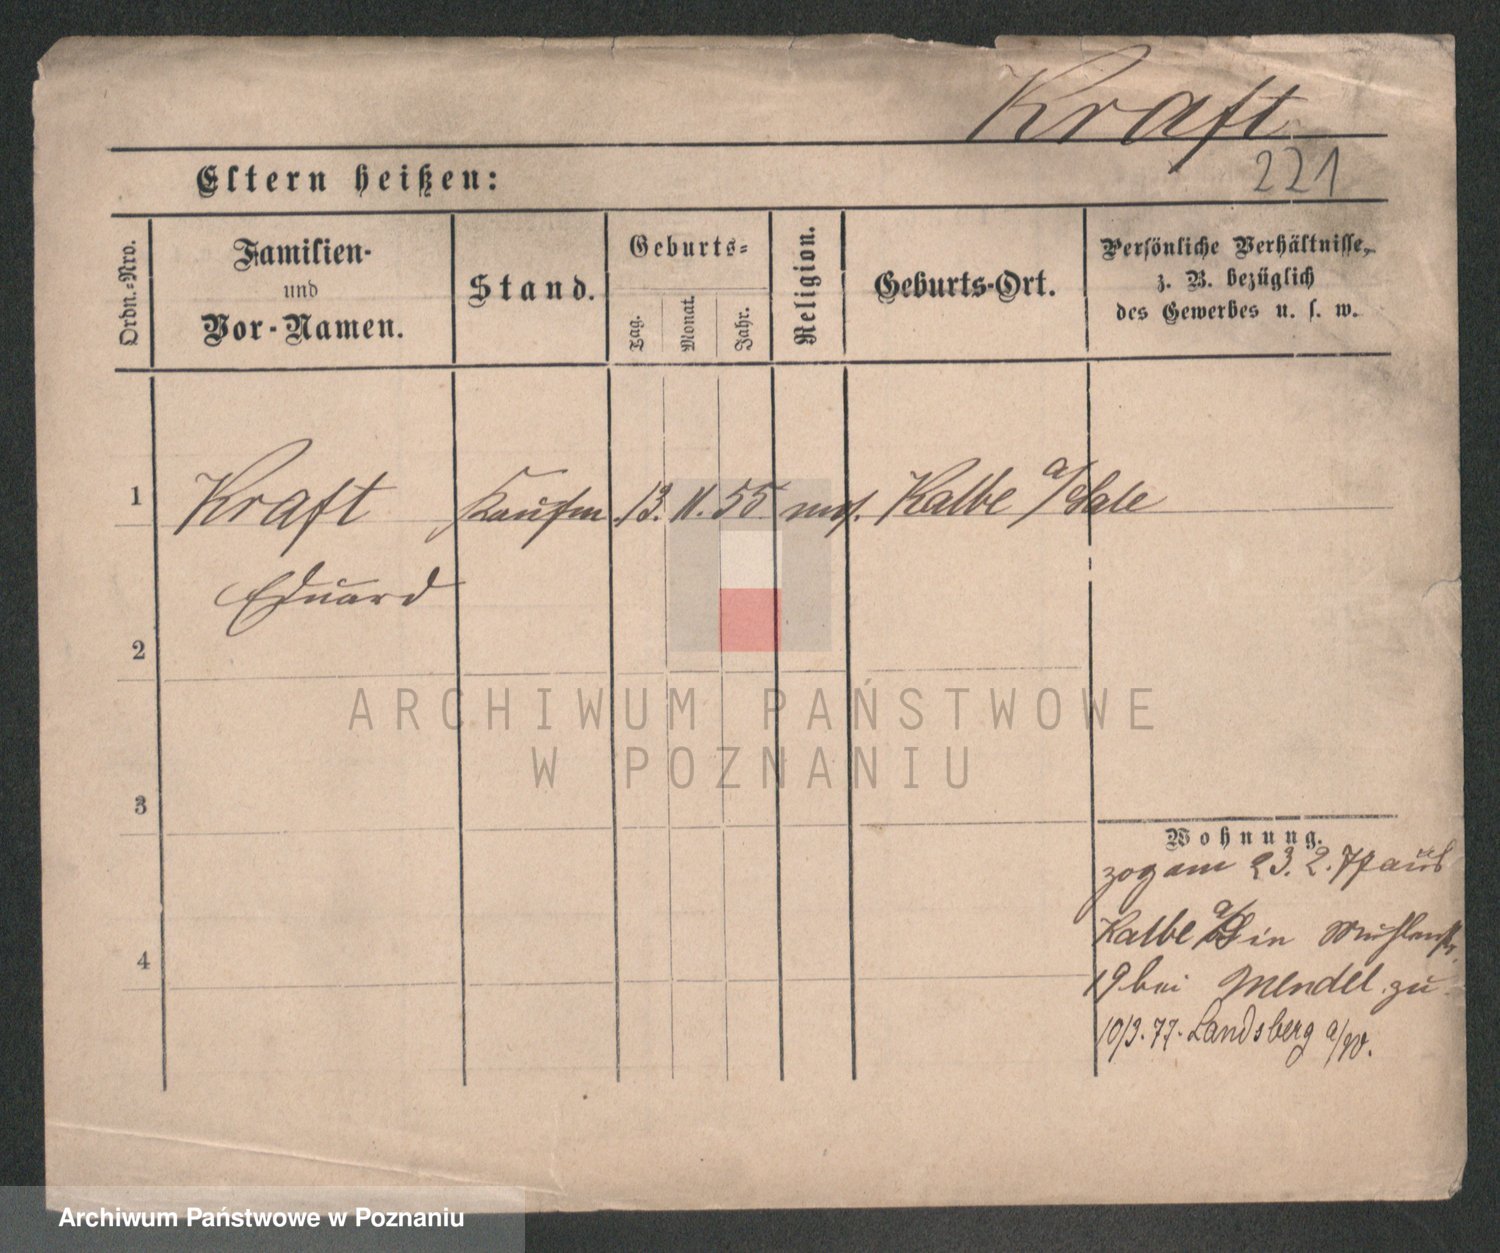 Kraft
221
Eltern heißen:
Ordn.-Nro.
Familien-
und
Vor-Namen.
Stand.
Geburts-
Tag.
Monat.
Jahr.
Religion.
Geburts-Ort.
Persönliche Verhältnisse,
z. B. bezüglich
des Gewerbes u. s. w.
1
Kraft Kaufm 13. 11. 55 mos. Kalbe a/Sale
Eduard
2
ARCHIWUM PAŃSTWOWE
W POZNANIU
3
Wohnung.
zog am 23. 2. 77 aus
Kalbe a/S in Mühlenstr.
19 bei Mendel zu
10/3. 77. Landsberg a/W.
4
Archiwum Państwowe w Poznaniu